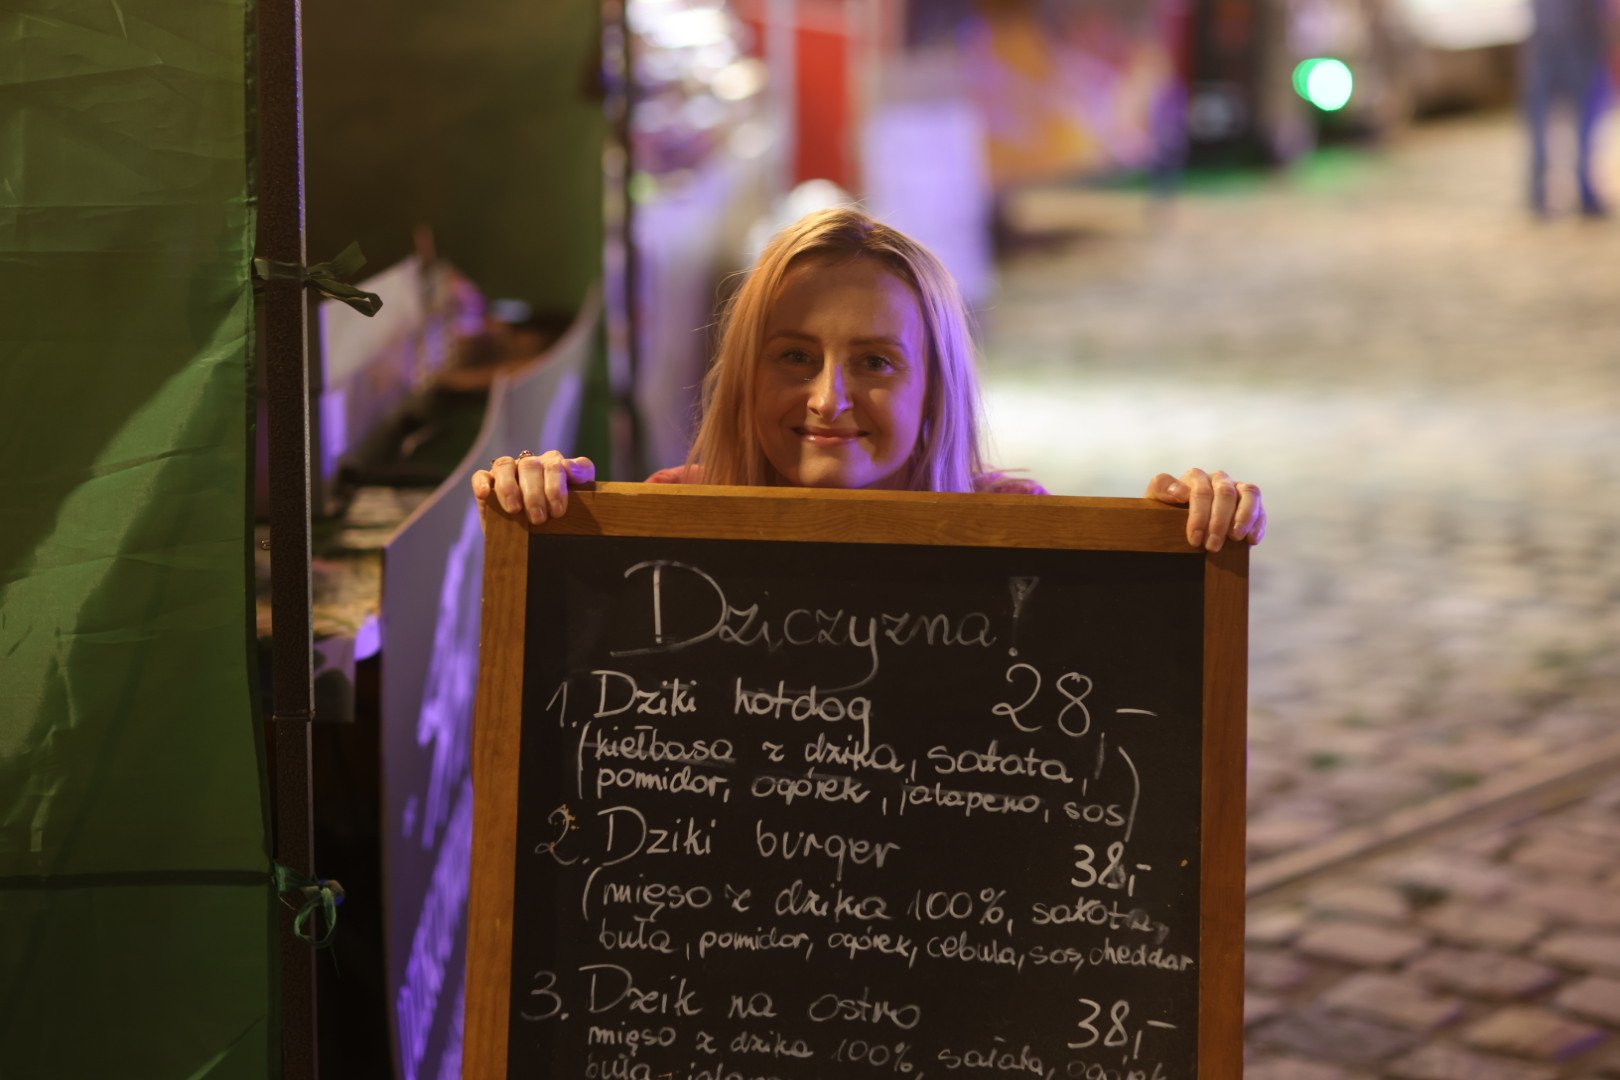 Dziczyzna!
1. Dziki hotdog 28,-
(kiełbasa z dzika, sałata,
pomidor, ogórek, jalapeno, sos)
2. Dziki burger 38,-
(mięso z dzika 100%, sałata,
buła, pomidor, ogórek, cebula, sos, cheddar
3. Dzik na ostro 38,-
mięso z dzika 100%, sałata, ogórek
buła